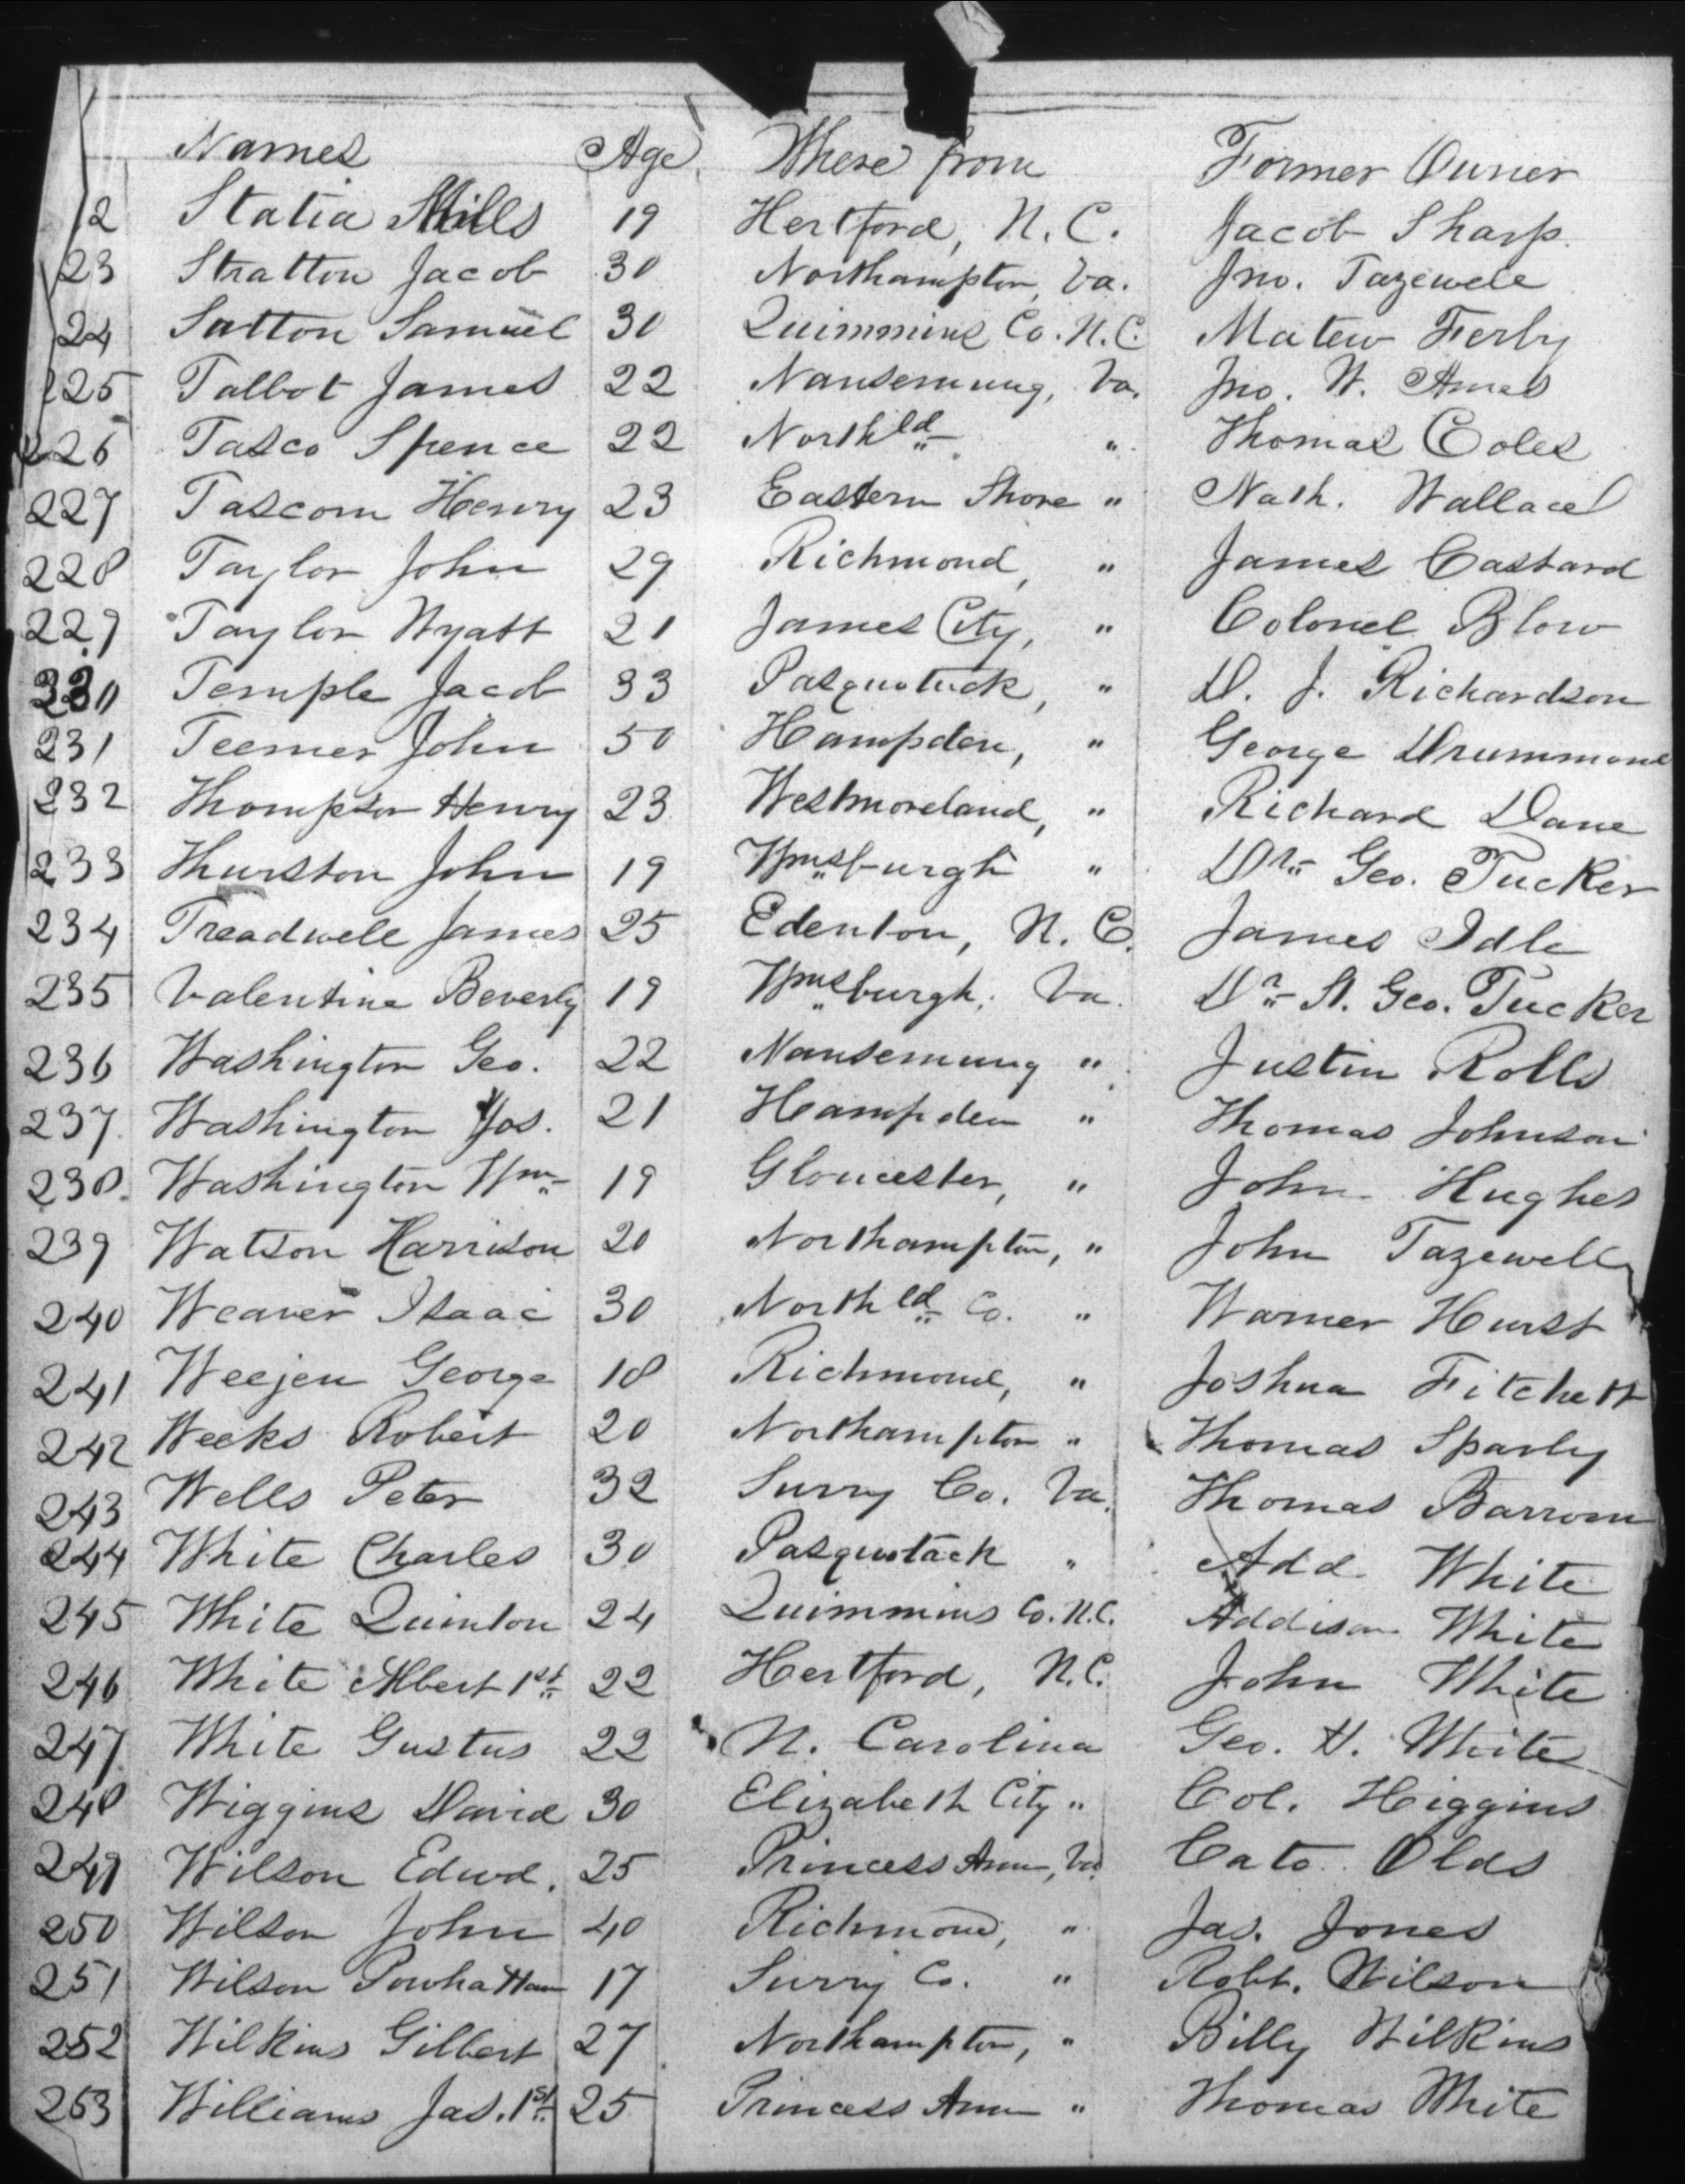 Names Age Where from Former Owner
2 Statia Mills 19 Hertford, N. C. Jacob Sharp.
23 Stratton Jacob 30 Northampton, Va. Jno. Tazewell
24 Sutton Samuel 30 Quimmins Co. N.C. Matew Ferby
225 Talbot James 22 Nansemung, Va. Jno. W. Ames
226 Tasco Spence 22 Northld " Thomas Coles
227 Tascom Henry 23 Eastern Shore " Nath. Wallace
228 Taylor John 29 Richmond, " James Castard
229 Taylor Wyatt 21 James City, " Colonel Blow
230 Temple Jacob 33 Pasquotuck, " D. J. Richardson
231 Teemer John 50 Hampden, " George Drummond
232 Thompson Henry 23 Westmoreland, " Richard Dane
233 Thurston John 19 Wmsburgh " Dr. Geo. Tucker
234 Treadwell James 25 Edenton, N. C. James Idle
235 Valentine Beverly 19 Wmsburgh, Va. Dr. St. Geo. Tucker
236 Washington Geo. 22 Nansemung " Justin Rolls
237 Washington Jos. 21 Hampden " Thomas Johnson
238. Washington Wm. 19 Gloucester, " John Hughes
239 Watson Harrison 20 Northampton, " John Tazewell
240 Weaver Isaac 30 Northld Co. " Warner Hurst
241 Weejen George 18 Richmond, " Joshua Fitchett
242 Weeks Robert 20 Northampton " Thomas Sparly
243 Wells Peter 32 Surry Co. Va. Thomas Barrom
244 White Charles 30 Pasquotack " Add White
245 White Quinton 24 Quimmins Co. N.C. Addison White
246 White Albert 1st 22 Hertford, N.C. John White
247 White Gustus 22 N. Carolina Geo. H. White
248 Wiggins David 30 Elizabeth City " Col. Higgins
249 Wilson Edwd. 25 Princess Ann, Va. Cato Olds
250 Wilson John 40 Richmond, " Jas. Jones
251 Wilson Powhattan 17 Surry Co. " Robt. Wilson
252 Wilkins Gilbert 27 Northampton, " Billy Wilkins
253 Williams Jas. 1st 25 Princess Ann " Thomas White